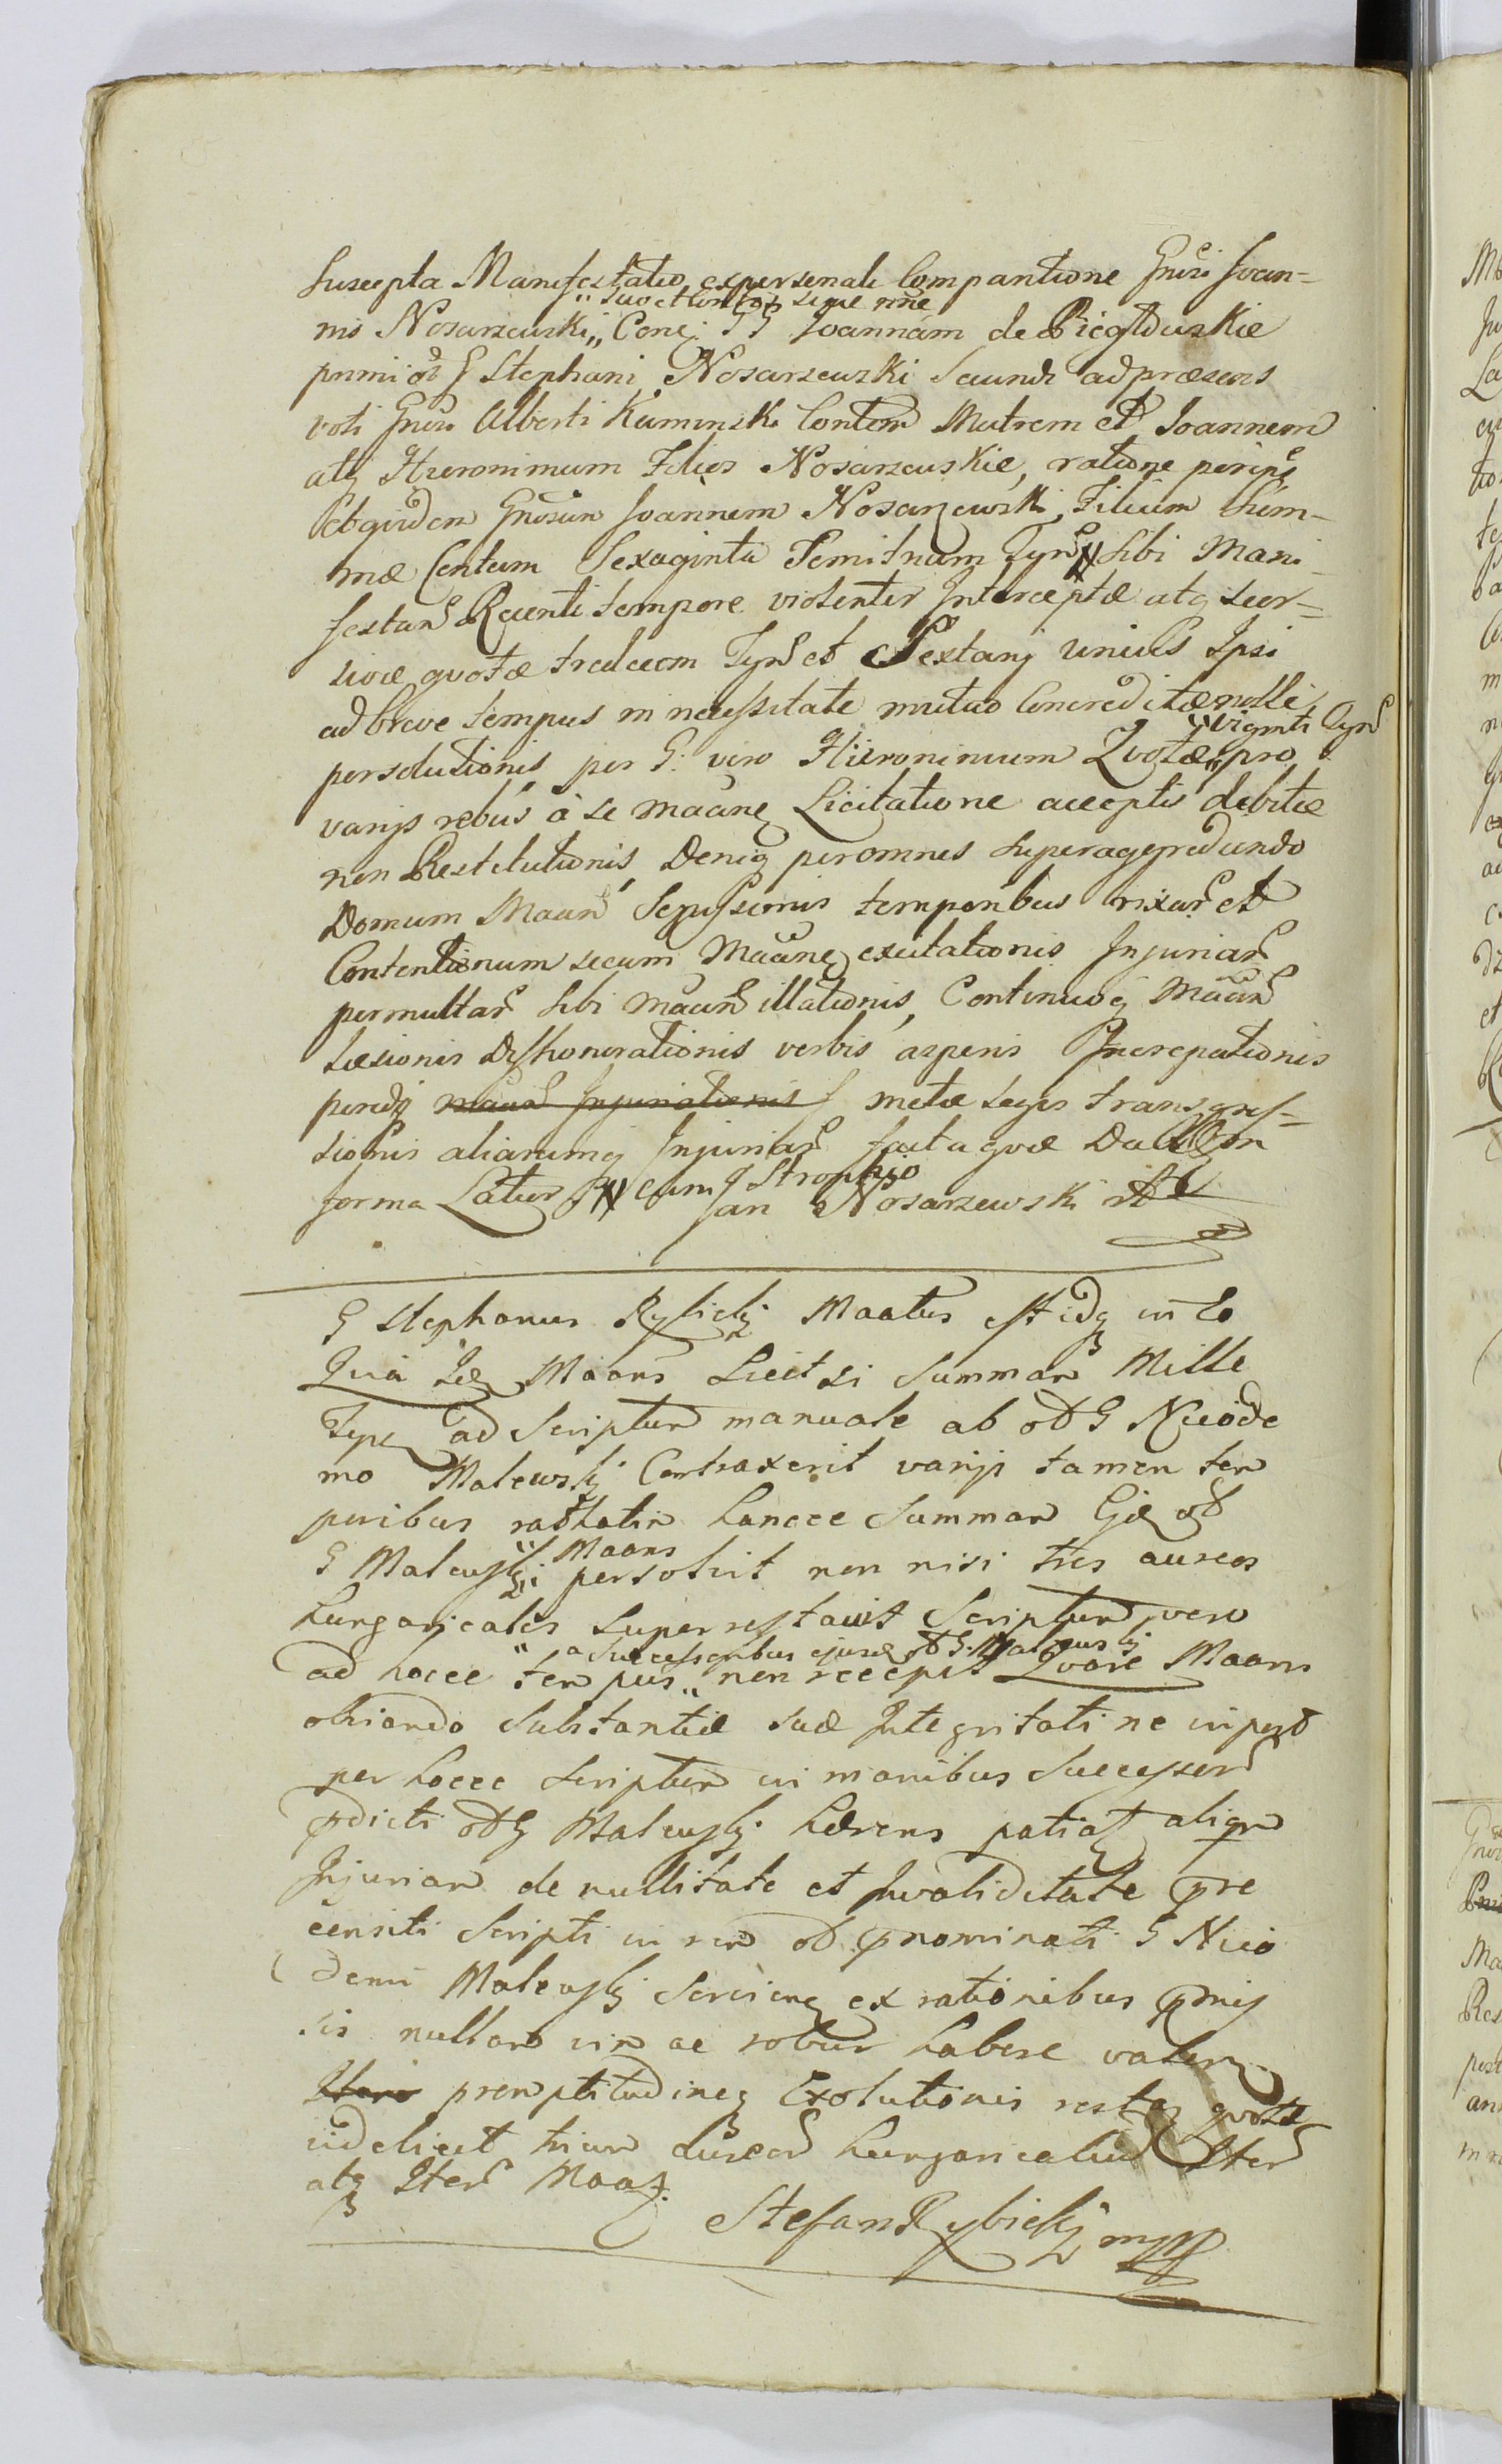 Suscepta Manifestatio expersonali Comparitione Gnri Joan-
„suo et conto2 sique nne
nis Nosarzewski„ Conc: GG Joannam de Piegłowskie
primi od G Stephani Nosarzewski Secundi adpræsens
voti Gnri Alberti Kaminski Contem Matrem et Joannem
atq Hieronimum Filios Nosarzewskie, ratione per
Gnosum Joannem Nosarzewski Filium Sum-
mæ Centum Sexaginta Semitrium Tynf # Sibi Mani-
festan Recenti tempore violenter Interceptæ atq seor-
sivæ quotæ tredecem Tynf et Sextanj unius Ipsi
ad breve tempus in necessitate mutuo Concreditæ nolle
„viginti Tynf
persolutionis per G: vero Hieronimum Quotæ„ pro
varijs rebus à se Maaneq Licitatione acceptis debitæ
non Restitutionis, Deniq peromnes superaggrediundo
Domum Maan Sepissimis temporibus rixar et
Contentionum secum Maaneq excitationis Injuriar
permultar Sibi Maan illationis, Continuoq Maan
Læsionis Dyshonorationis verbis asperis Increpationis
peredq Maan Injuriationis metæ Legis transgres-
sionis aliarumq Injuriar facta quæ Datt in
forma Latius # cum Strophio
Jan Nosarzewski
G Stephanus Rybickj Maatus est idq in eo
Quia Idq Maans Licet si Summam Mille
Tynf ad Scriptum manuale ab od G Nicode
mo Malewskj Contraxerit varijs tamen tem
poribus rathatim hancce Summam Gid od
„Maans
G Malewskj„ persolvit non nisi tres aureos
hungaricales superrestavit Scriptum vero
„a Successoribus ejusd od G: Malewskj
ad hocce tempus„ non recepit Quare Maans
obviando Substantiæ suæ Integritati ne inpost
per hocce Scriptum in manibus Successor
pdicti od G Malewskj hærens patiat aliqm
Injuriam de nullitate et Invaliditate pre
censiti Scripti in rem od pnominati G Nico
demi Malewskj Servienq ex rationibus pmis
sis nullam vim ac robur habere valen
Itero promptitudineq Exolutionis restaq quota
videlicet trium Aureor hungaricaliu Iter
atq Iter Maat.
Stefan Rybickj mpp